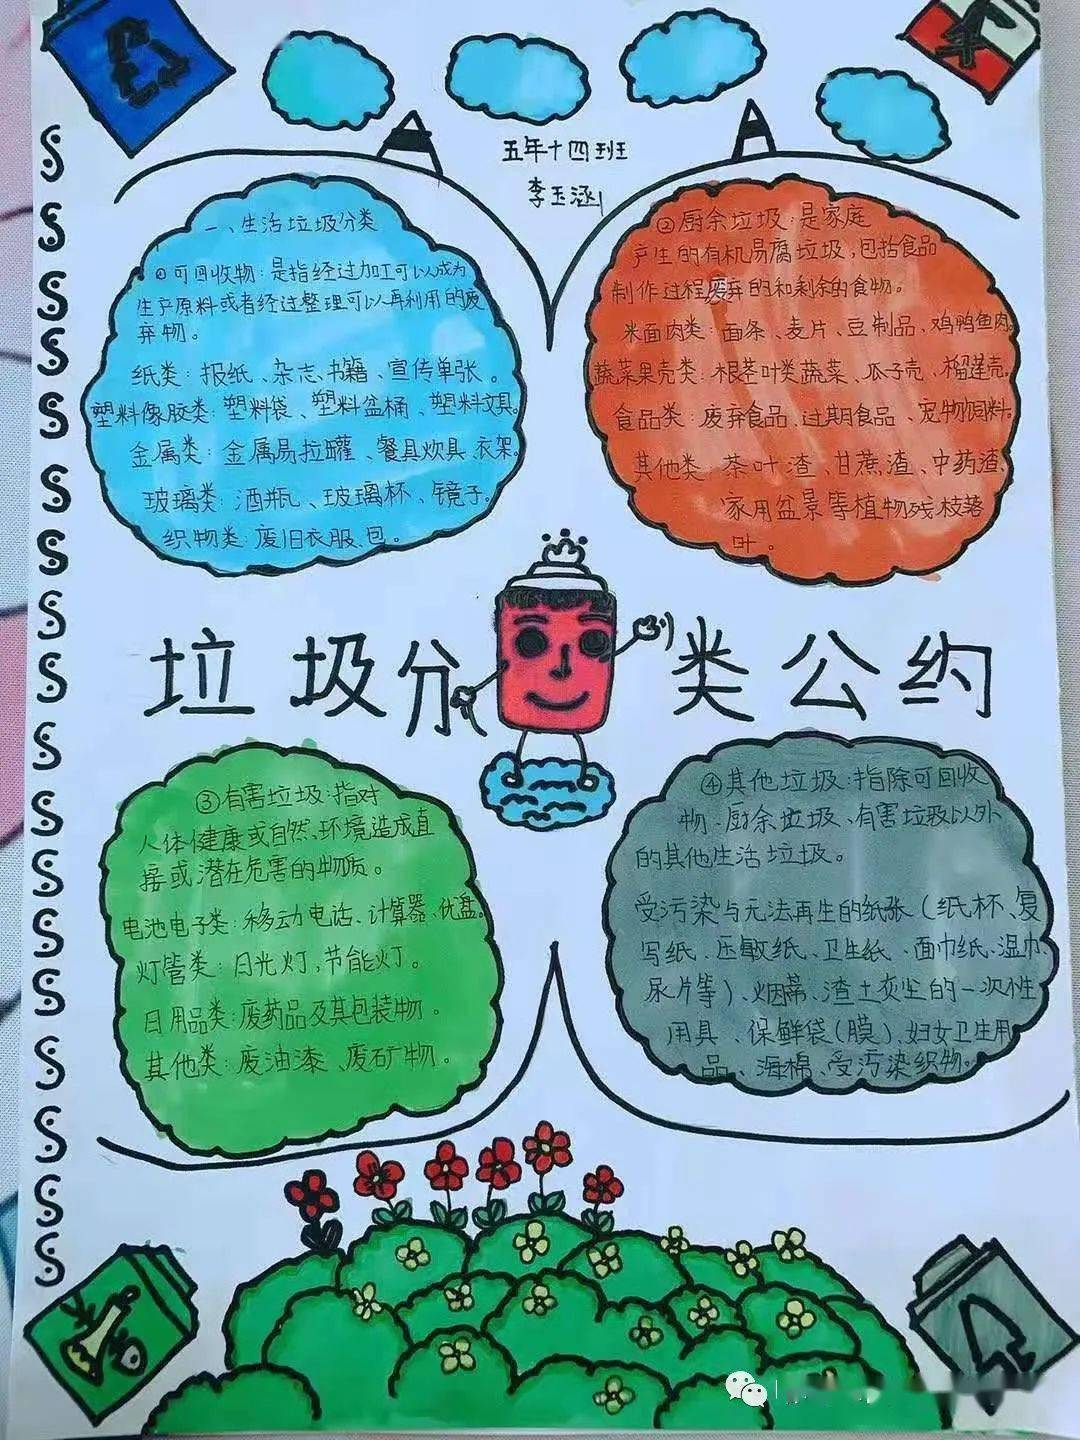 五年十四班
李玉涵
一、生活垃圾分类
①可回收物:是指经过加工可以成为
生产原料或者经过整理可以再利用的废
弃物。
纸类:报纸、杂志、书籍、宣传单张。
塑料像胶类:塑料袋、塑料盆桶、塑料文具。
金属类:金属易拉罐、餐具炊具、衣架。
玻璃类:酒瓶、玻璃杯、镜子。
织物类:废旧衣服、包。
②厨余垃圾:是家庭
产生的有机易腐垃圾,包括食品
制作过程废弃的和剩余的食物。
米面肉类:面条、麦片、豆制品、鸡鸭鱼肉。
蔬菜果壳类:根茎叶类蔬菜、瓜子壳、榴莲壳。
食品类:废弃食品、过期食品、宠物饲料。
其他类:茶叶渣、甘蔗渣、中药渣、
家用盆景等植物残枝落
叶。
垃圾分类公约
③有害垃圾:指对
人体健康或自然、环境造成直
接或潜在危害的物质。
电池电子类:移动电话、计算器、优盘。
灯管类:日光灯,节能灯。
日用品类:废药品及其包装物。
其他类:废油漆、废矿物。
④其他垃圾:指除可回收
物、厨余垃圾、有害垃圾以外
的其他生活垃圾。
受污染与无法再生的纸张(纸杯、复
写纸、压敏纸、卫生纸、面巾纸、湿巾、
尿片等)、烟蒂、渣土灰尘的一次性
用具、保鲜袋(膜)、妇女卫生用
品、海棉、受污染织物。